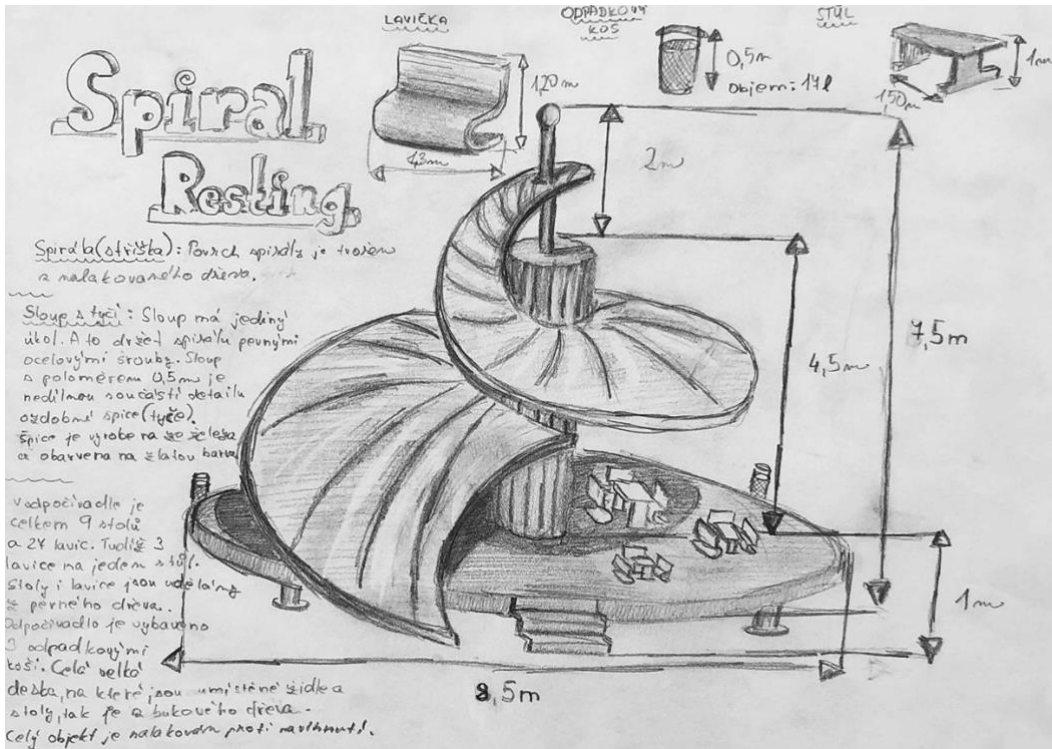 LAVIČKA
ODPADKOVÝ
KOŠ
STŮL
Spiral
Resting
1,20m
1,3m
0,5m
Objem: 17l
1m
1,50m
2m
4,5m
7,5m
1m
8,5m
Spirála (stříška): Povrch spirály je tvořen
z nalakovaného dřeva.
Sloup s tyčí: Sloup má jediný
úkol. A to držet spirálu pevnými
ocelovými šrouby. Sloup
s poloměrem 0,5m je
nedílnou součástí detailu
ozdobné špice (tyče).
Špice je vyrobena ze železa
a obarvena na zlatou barvu
V odpočívadle je
celkem 9 stolů
a 27 lavic. Tudíž 3
lavice na jeden stůl.
Stoly i lavice jsou udělány
z pevného dřeva.
Odpočívadlo je vybaveno
3 odpadkovými
koši. Celá velká
deska, na které jsou umístěné židle a
stoly, tak je z bukového dřeva.
Celý objekt je nalakován proti navlhnutí.